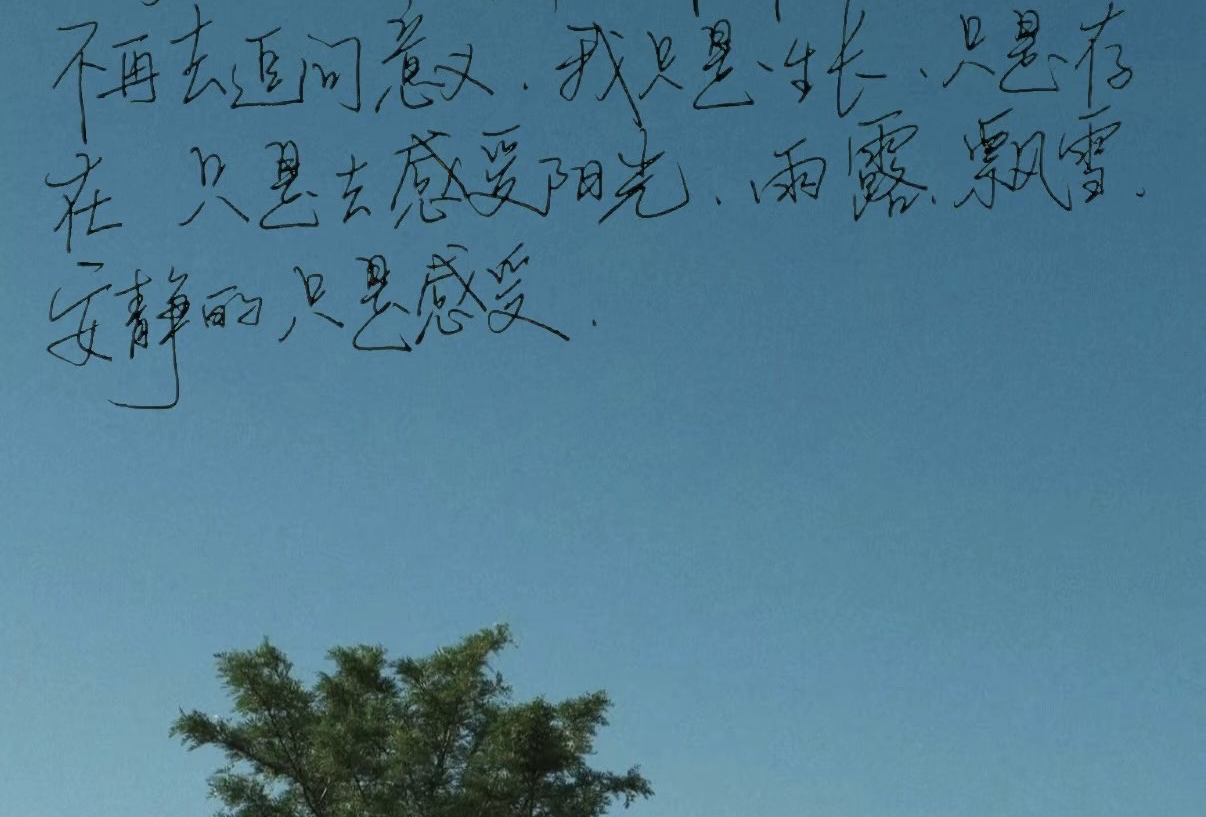 不再去追问意义.我只是生长、只是存
在 只是去感受阳光、雨露、飘雪.
安静的只是感受.